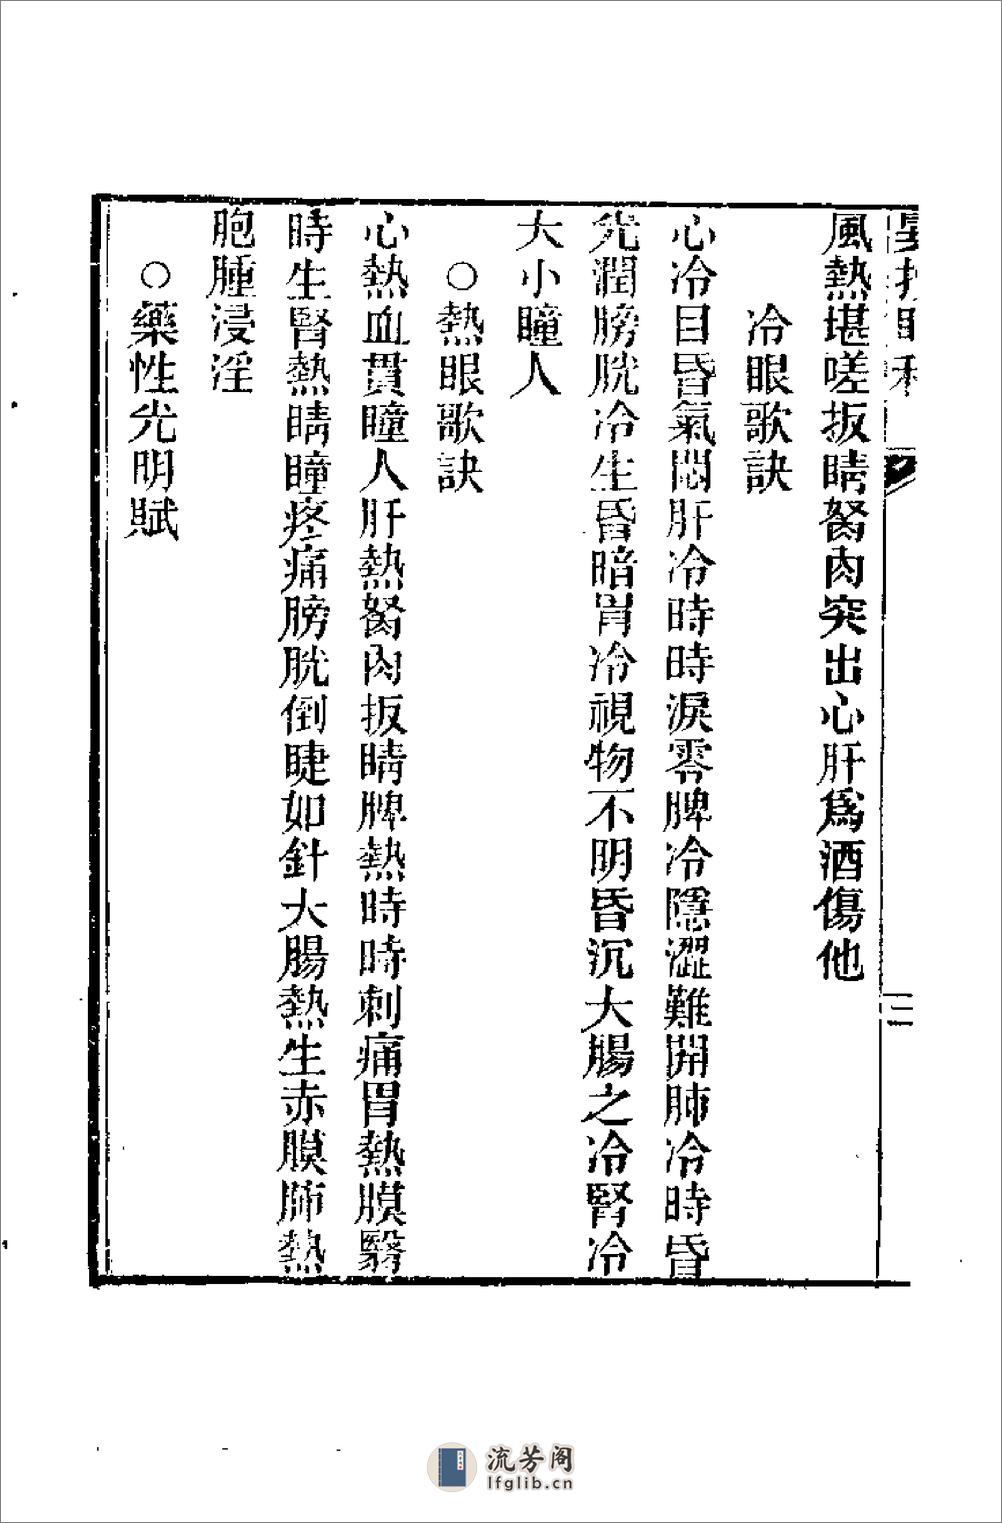 風熱堪嗟扳睛胬肉突出心肝爲酒傷他
冷眼歌訣
心冷目昏氣悶肝冷時時淚零脾冷隱澀難開肺冷時昏
光潤膀胱冷生昏暗胃冷視物不明昏沉大腸之冷腎冷
大小瞳人
○熱眼歌訣
心熱血貫瞳人肝熱胬肉扳睛脾熱時時刺痛胃熱膜翳
時生腎熱睛瞳疼痛膀胱倒睫如針大腸熱生赤膜肺熱
胞腫浸淫
○藥性光明賦
二
流芳阁
lfglib.cn